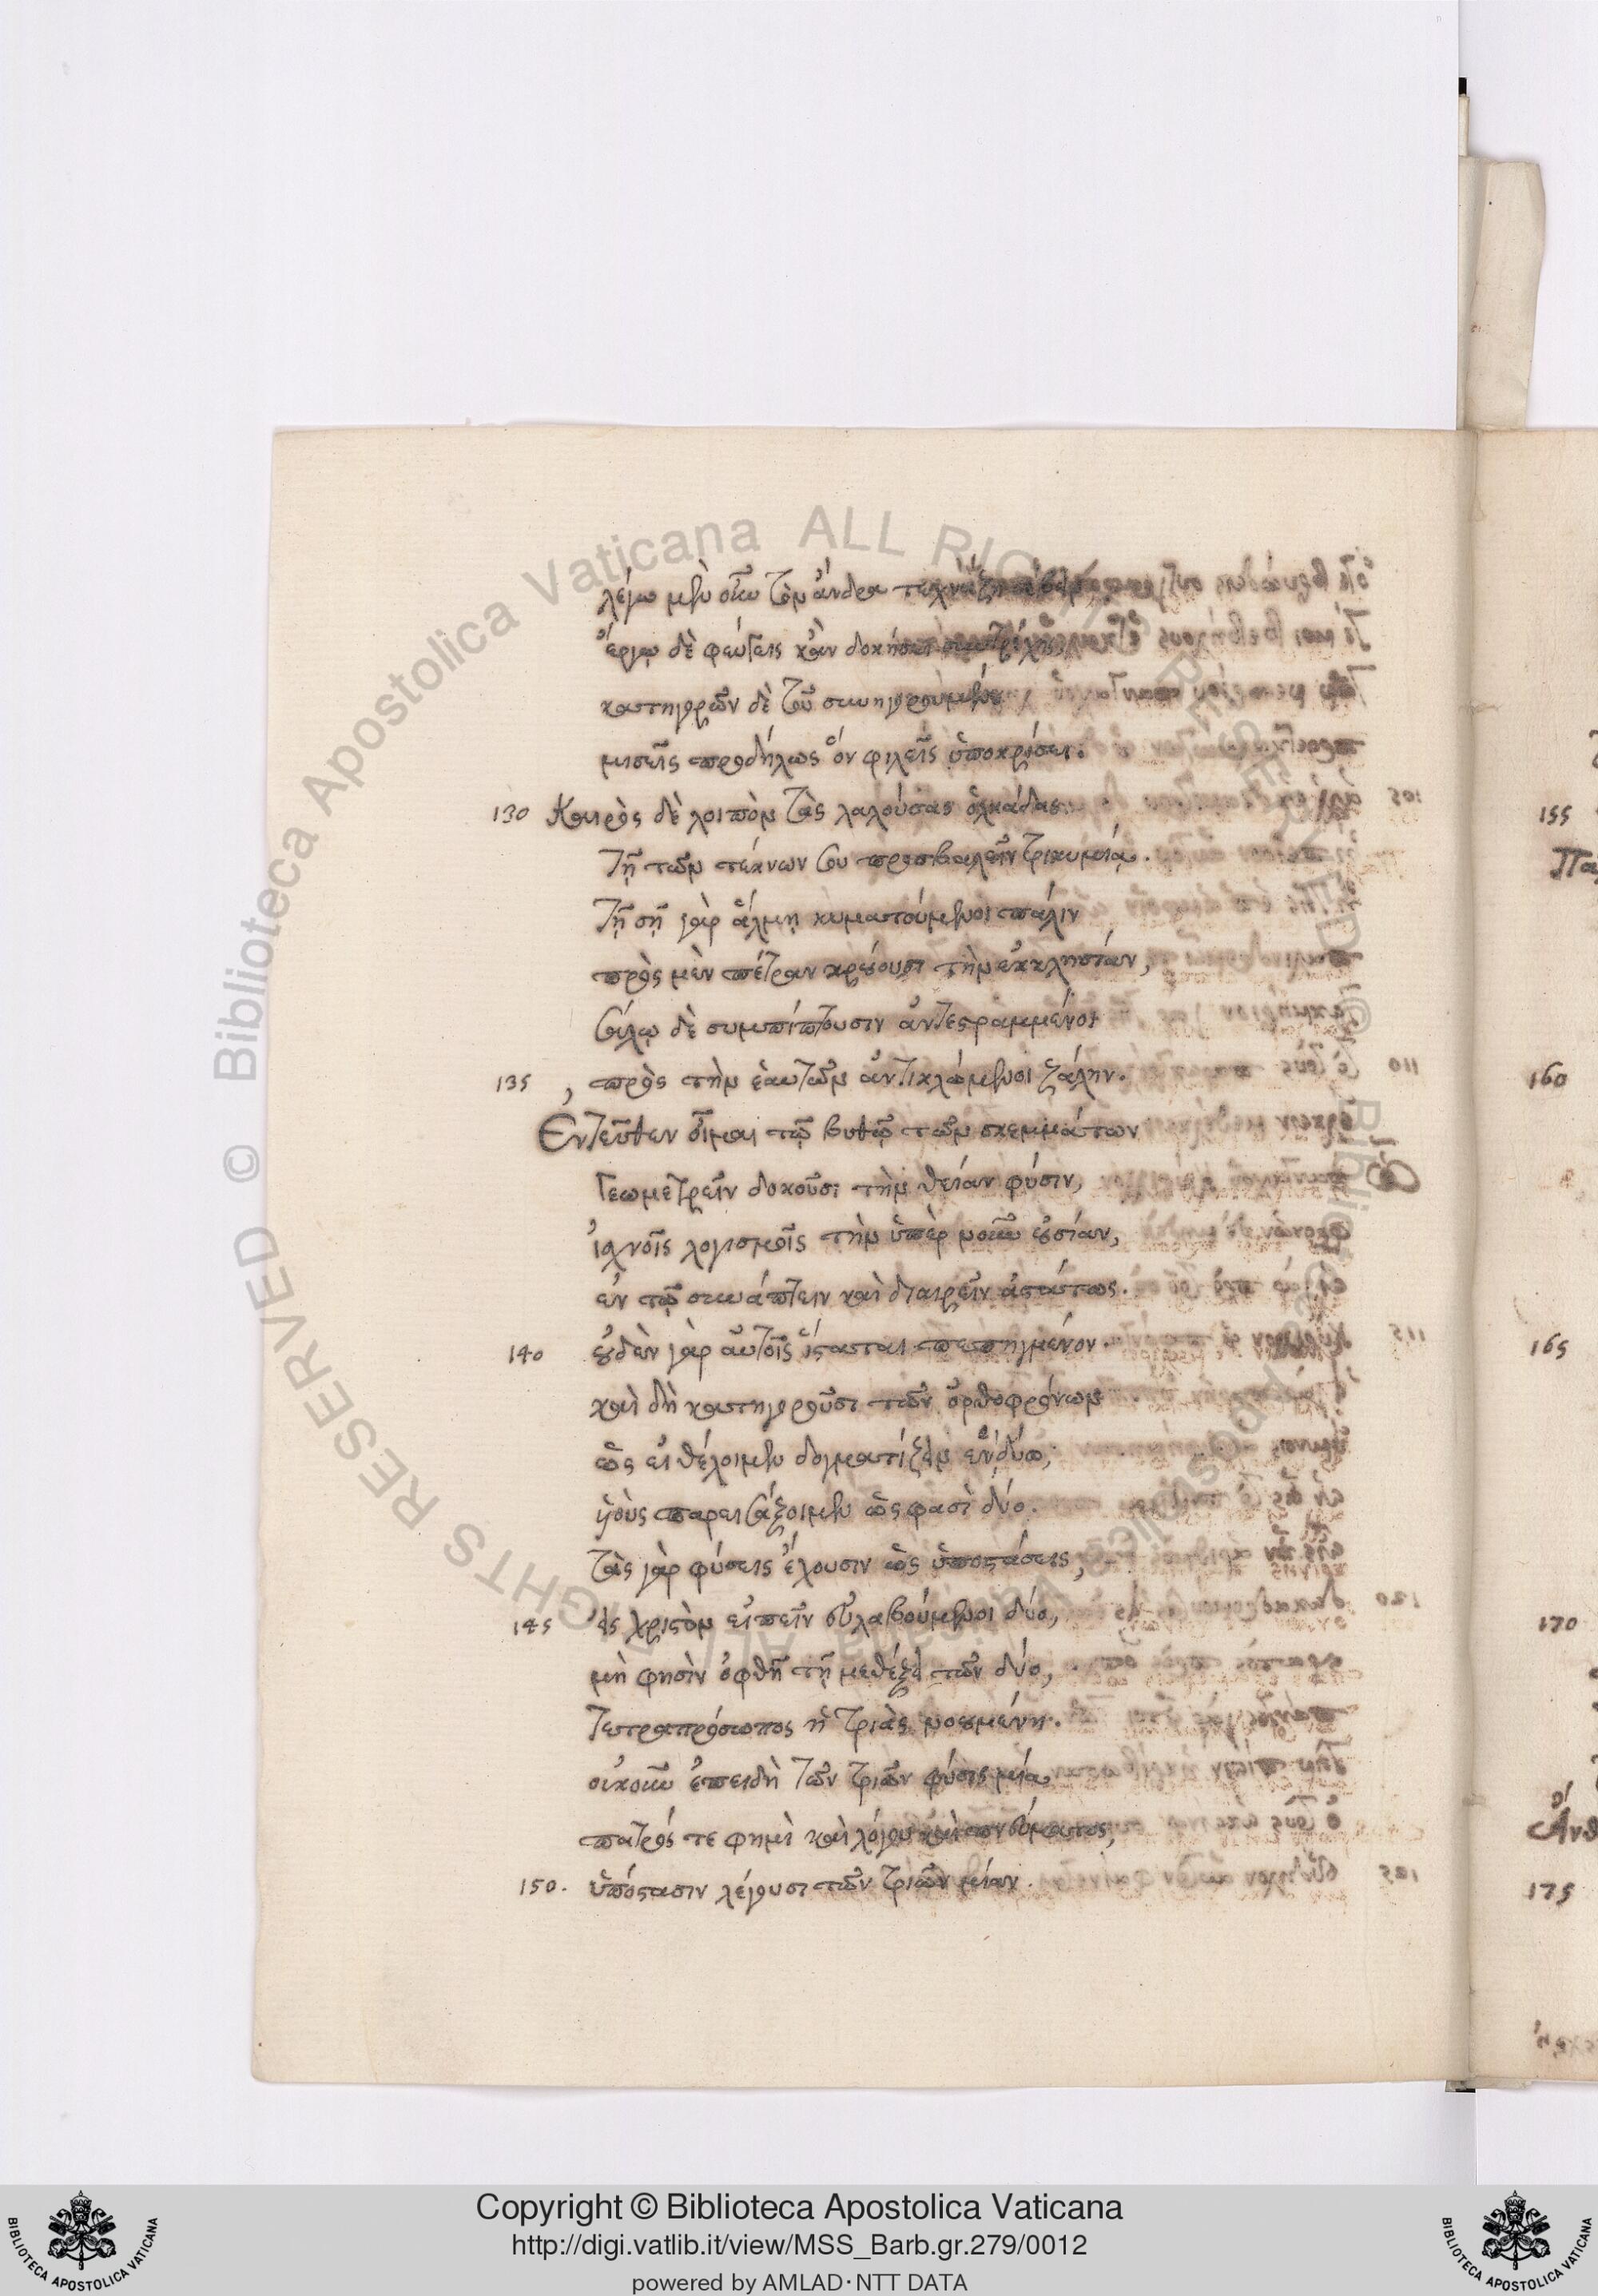 λέγω μὲν οὖν τὸν ἄνδρα
ἔργῳ δὲ φεύγεις κἂν δοκήσει συντρέχῃς,
κατηγορῶν δὲ τοῦ συνηγορουμένου
μισεῖς προδήλως ὃν φιλεῖς ὑποκρίσει.
130 Καιρὸς δὲ λοιπὸν τὰς λαλούσας ὁλκάδας
τῇ τῶν τέκνων σου προσβαλεῖν τρικυμίᾳ.
τῇ σῇ γὰρ ἅλμῃ κυματούμενοι πάλιν
πρὸς μὲν πέτραν κρούουσι τὴν ἐκκλησίαν,
σάλῳ δὲ συμπίπτουσιν ἀντεστραμμένοι
135 πρὸς τὴν ἑαυτῶν ἀντικλώμενοι ζάλην.
Ἐντεῦθεν οἶμαι τῷ βυθῷ τῶν σκεμμάτων
Γεωμετρεῖν δοκοῦσι τὴν θείαν φύσιν,
ἰχνοῖς λογισμοῖς τὴν ὑπὲρ νοῦν οὐσίαν,
ἐν τῷ συνάπτειν καὶ διαιρεῖν ἀστάτως.
140 οὐδὲν γὰρ αὐτοῖς ἵσταται πεπηγμένον.
καὶ δὴ κατηγοροῦσι τῶν ὀρθοφρόνων
ὡς εἰ θέλοιμεν δογματίζειν ἓν δύο,
υἱοὺς παρεισάξοιμεν ὥς φασὶ δύο.
τὰς γὰρ φύσεις ἕλουσιν ὡς ὑποστάσεις,
145 εἰς χριστὸν εἰπεῖν εὐλαβούμενοι δύο,
μὴ φησὶν ὀφθῇ τῇ μεθέξει τῶν δύο,
τετραπρόσωπος ἡ τριὰς νοουμένη.
οὐκοῦν ἐπειδὴ τῶν τριῶν φύσις μία
πατρός τε φημὶ καὶ λόγου καὶ πνεύματος,
150. ὑπόστασιν λέγουσι τῶν τριῶν μίαν.
155
Πα
160
165
170
Ἀνθ
175
Copyright © Biblioteca Apostolica Vaticana
http://digi.vatlib.it/view/MSS_Barb.gr.279/0012
powered by AMLAD·NTT DATA
BIBLIOTECA APOSTOLICA VATICANA
BIBLIOTECA APOSTOLICA VATICANA
© Biblioteca Apostolica Vaticana ALL RIGHTS RESERVED